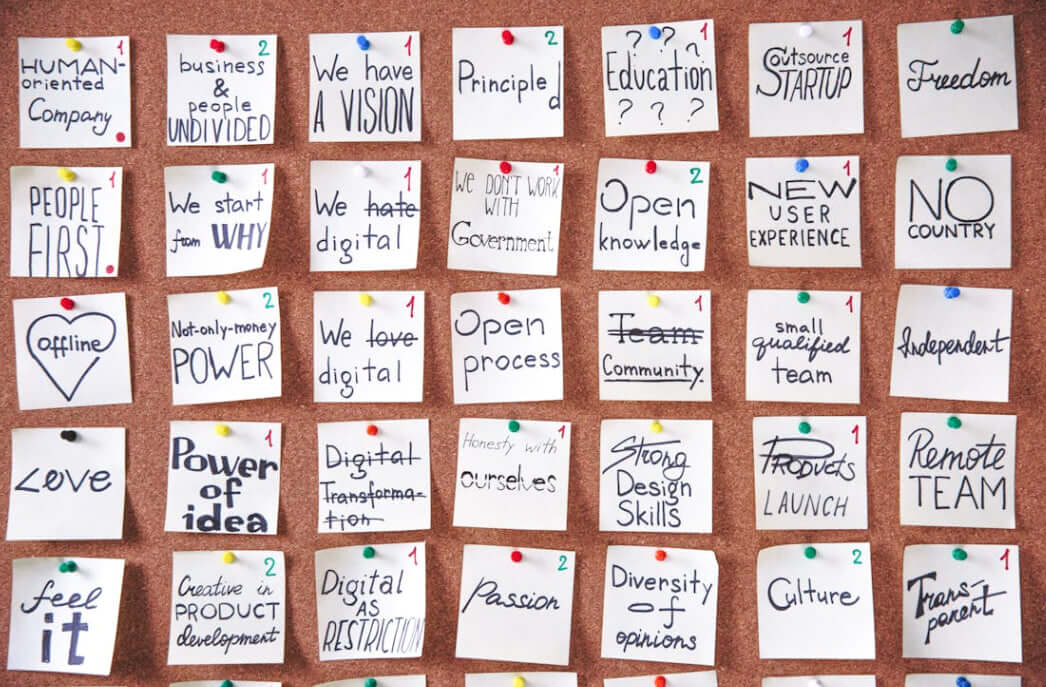 1
HUMAN-
oriented
Company
2
business
&
people
UNDIVIDED
1
We have
A VISION
2
Principled
1
? ? ?
Education
? ? ?
1
Outsource
STARTUP
Freedom
1
PEOPLE
FIRST
1
We start
from WHY
1
We hate
digital
1
WE DON'T WORK
WITH
Government
2
Open
knowledge
1
NEW
USER
EXPERIENCE
NO
COUNTRY
offline
2
Not-only-money
POWER
1
We love
digital
Open
process
1
Team
Community
1
small
qualified
team
Independent
Love
1
Power
of
idea
Digital
Transforma-
tion
1
Honesty with
ourselves
Strong
Design
Skills
1
PRODUCTS
LAUNCH
REMOTE
TEAM
feel
it
2
Creative in
PRODUCT
development
1
Digital
AS
RESTRICTION
2
Passion
Diversity
of
opinions
2
Culture
1
Trans-
parent